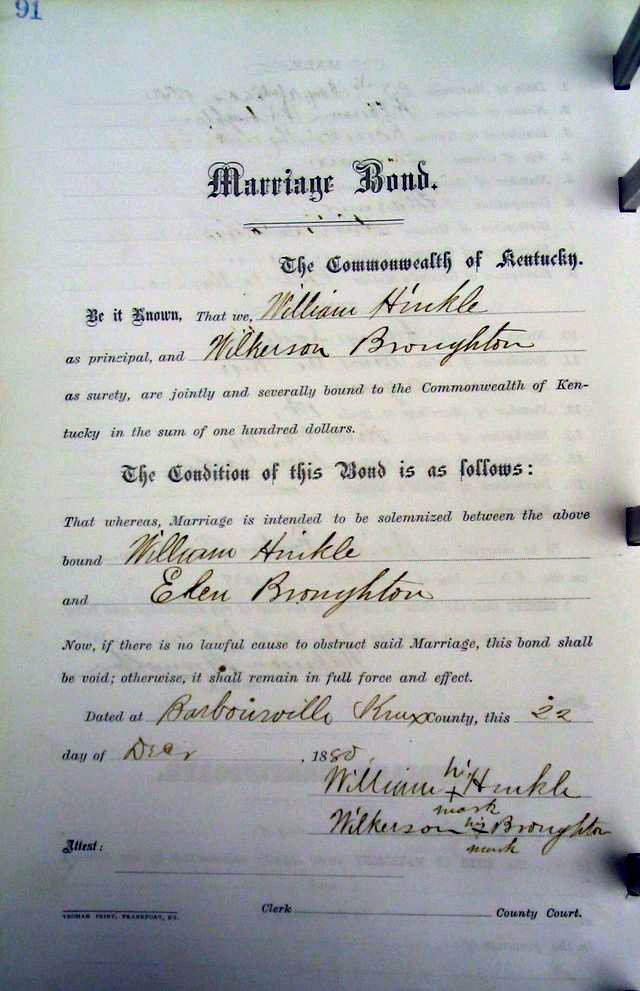 91
Marriage Bond.
The Commonwealth of Kentucky.
Be it Known, That we, William Hinkle
as principal, and Wilkerson Broughton
as surety, are jointly and severally bound to the Commonwealth of Ken-
tucky in the sum of one hundred dollars.
The Condition of this Bond is as follows:
That whereas, Marriage is intended to be solemnized between the above
bound William Hinkle
and Elen Broughton
Now, if there is no lawful cause to obstruct said Marriage, this bond shall
be void; otherwise, it shall remain in full force and effect.
Dated at Barbourville Knox County, this 22
day of Decr, 1880.
William his + Hinkle
mark
Wilkerson his + Broughton
mark
Attest:
Clerk County Court.
YEOMAN PRINT, FRANKFORT, KY.